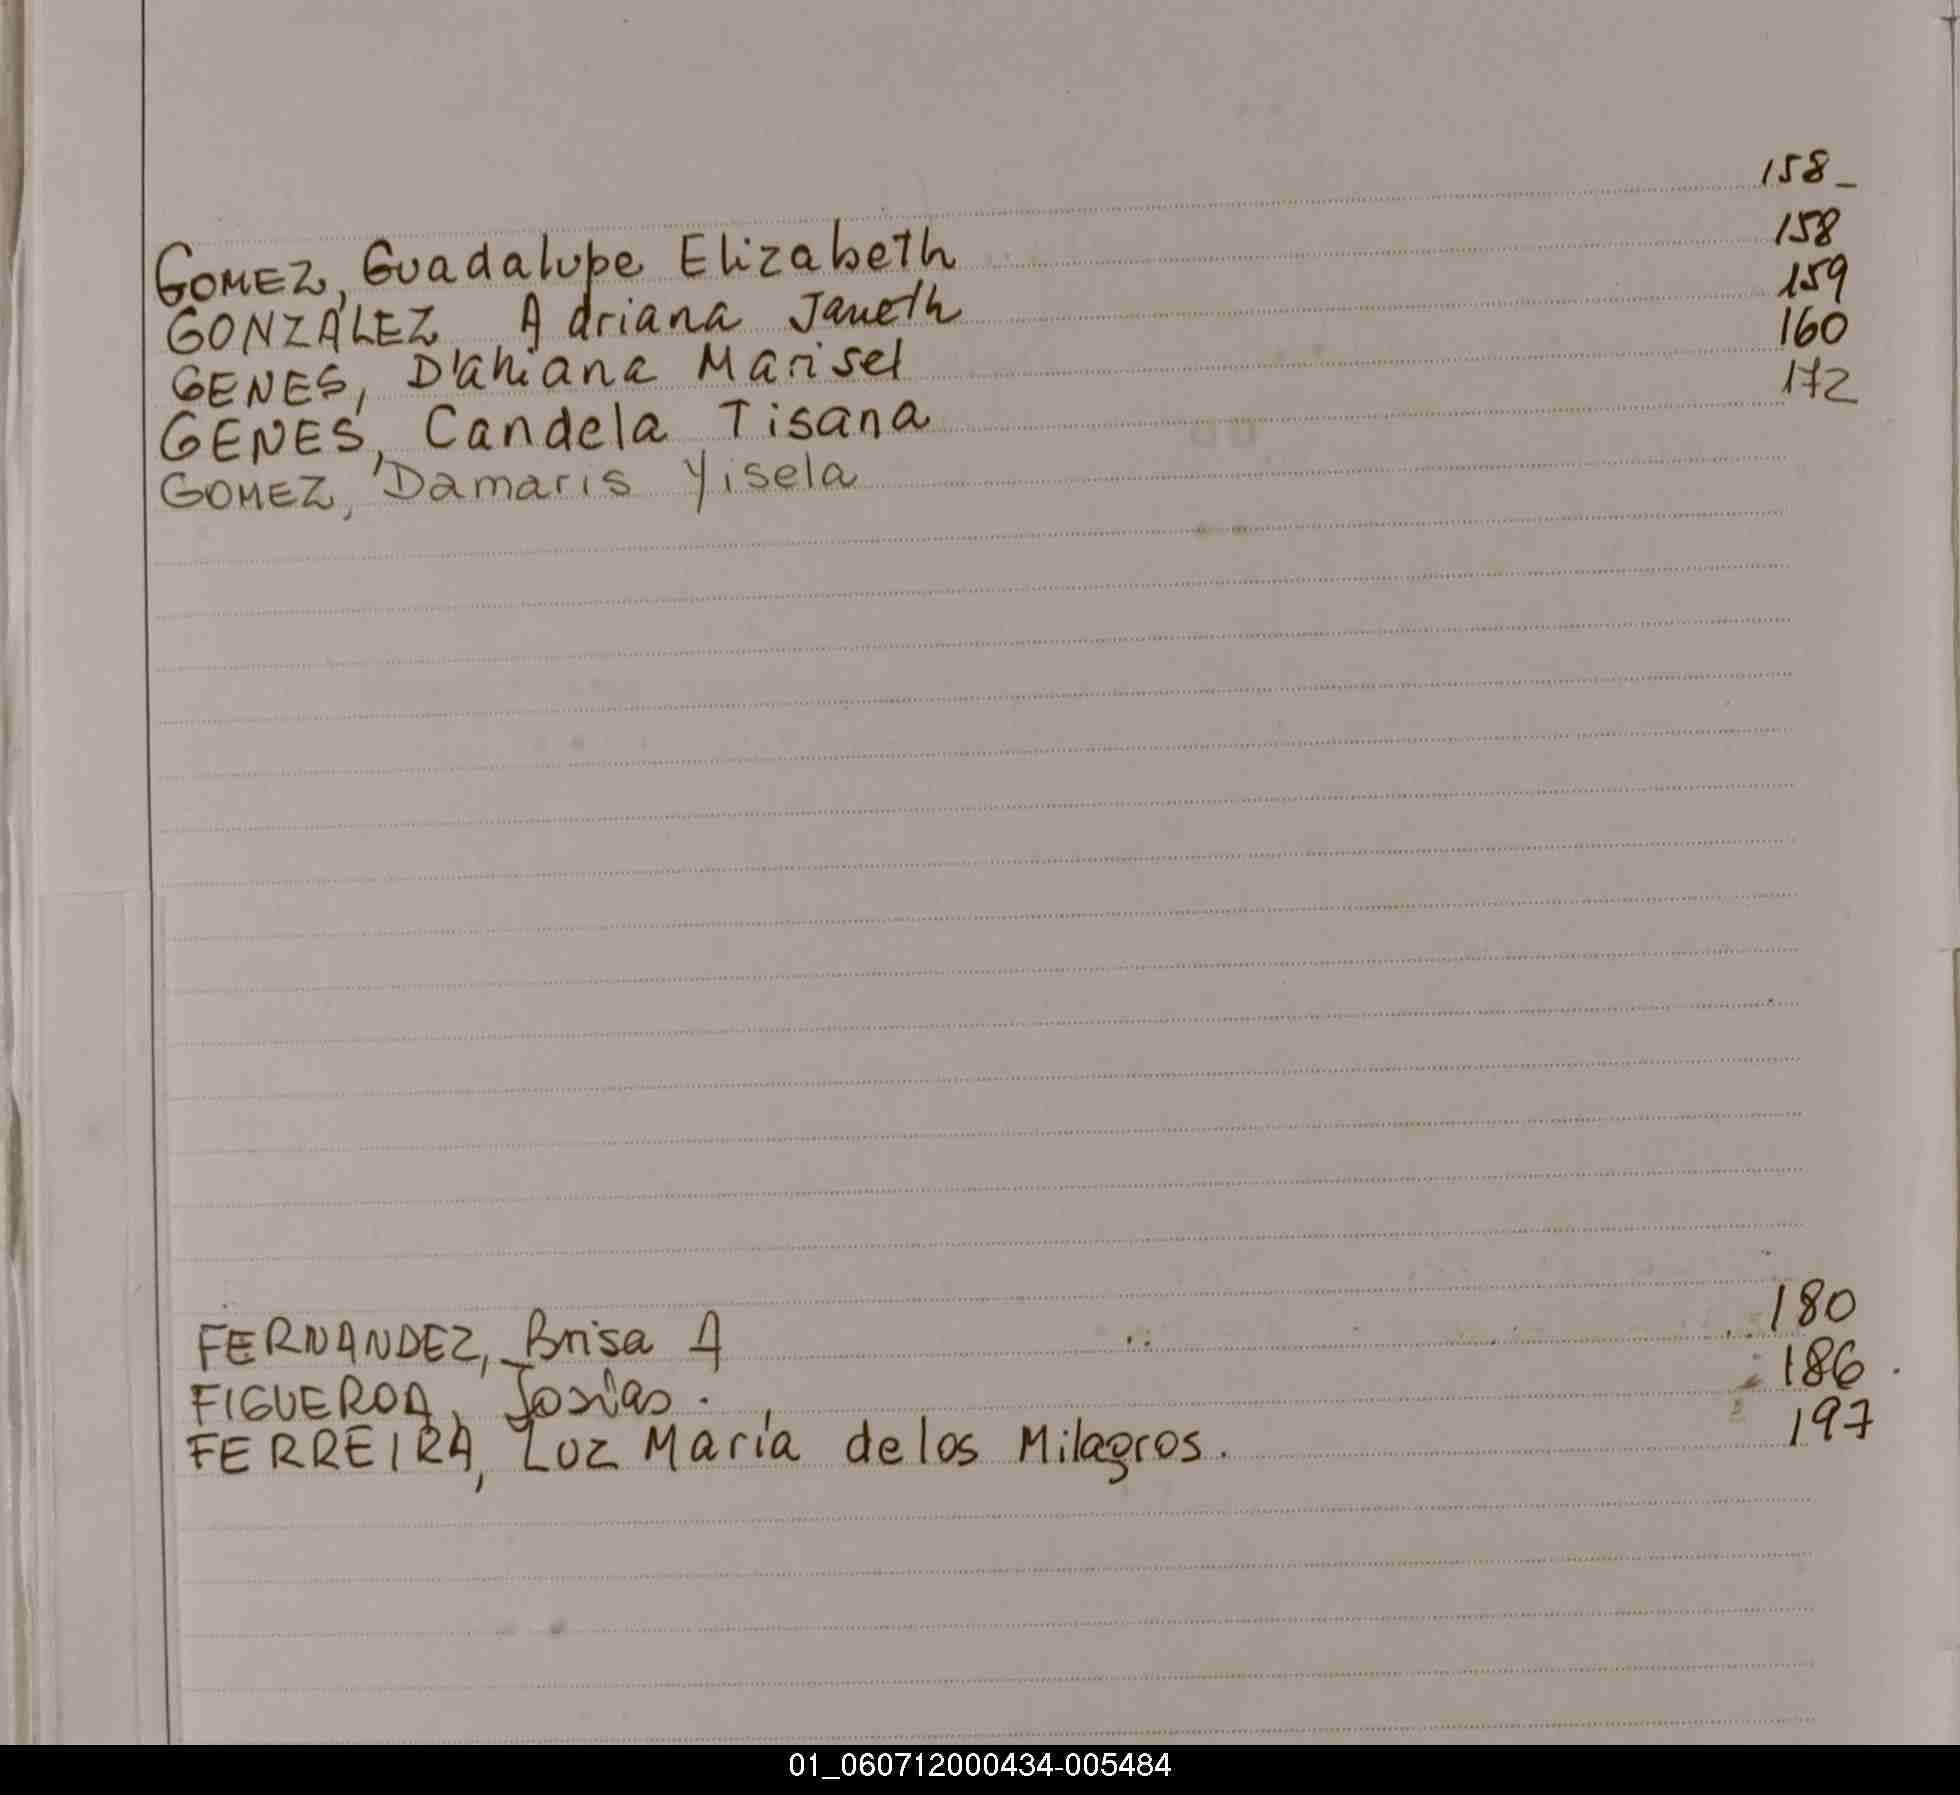 GOMEZ, Guadalupe Elizabeth 158_
GONZÁLEZ Adriana Janeth 158
GENES, Dahiana Marisel 159
GENES, Candela Tisana 160
GOMEZ, Damaris Yisela 172
FERNANDEZ, Brisa A 180
FIGUEROA, Josías. 186.
FERREIRA, Luz María de los Milagros. 197
01_060712000434-005484